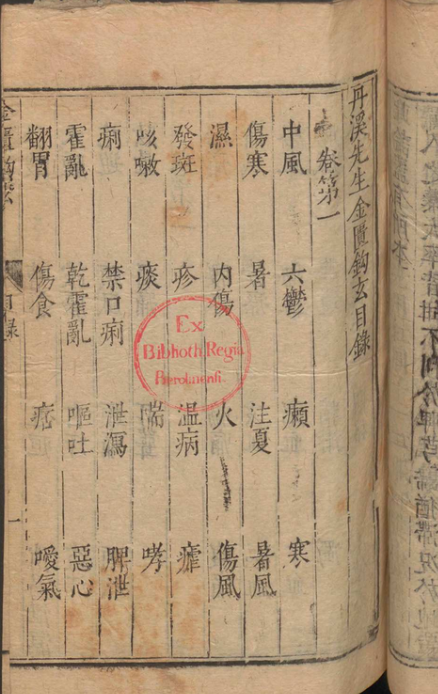 丹溪先生金匱鈎玄目錄
卷第一
中風 六鬱 癩 寒
傷寒 暑 注夏 暑風
濕 內傷 火 傷風
發斑 疹 溫病 瘧
咳嗽 痰 喘 哮
痢 禁口痢 泄瀉 脾泄
霍亂 乾霍亂 嘔吐 惡心
翻胃 傷食 痞 噯氣
金匱鈎玄 目錄 一
Ex
Biblioth. Regia
Berolinensi.